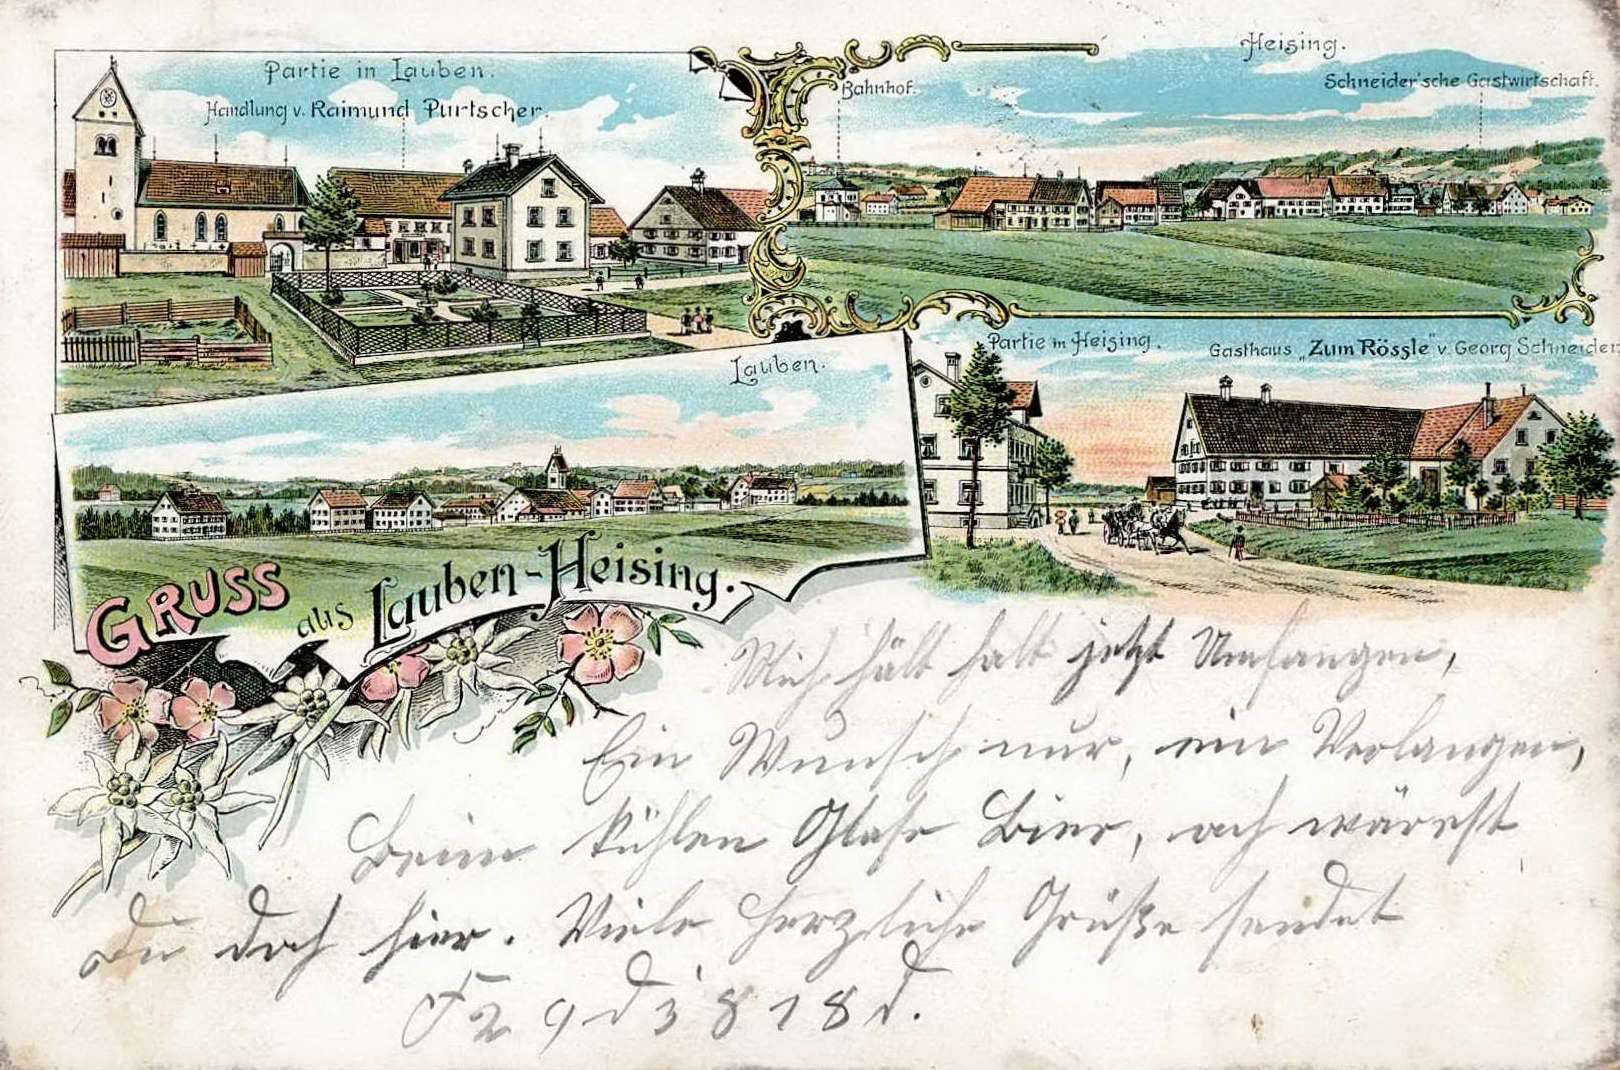 Partie in Lauben.
Handlung v. Raimund Purtscher.
Bahnhof.
Heising.
Schneider'sche Gastwirtschaft.
Lauben.
Partie in Heising.
Gasthaus „Zum Rössle" v. Georg Schneider
GRUSS aus Lauben-Heising.
Mich hält halt jetzt Umfangen,
Ein Wunsch nur, ein Verlangen,
Beim kühlen Glase Bier, ach wärest
Du doch hier. Viele herzliche Grüße sendet